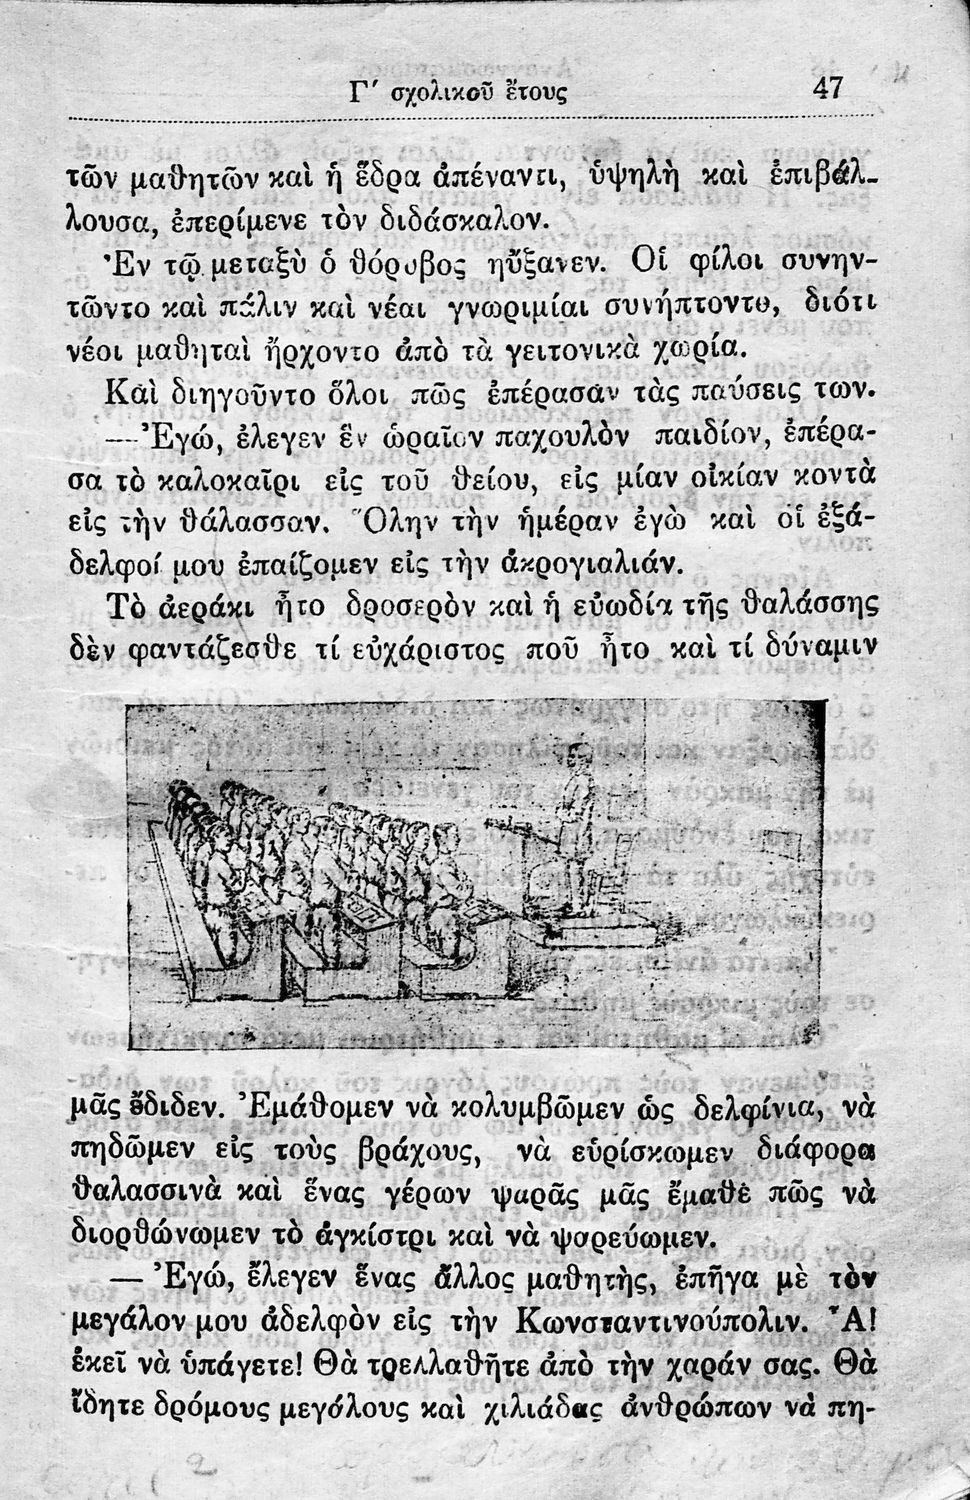 Γ′ σχολικοῦ ἔτους 47
τῶν μαθητῶν καὶ ἡ ἕδρα ἀπέναντι, ὑψηλὴ καὶ ἐπιβάλ-
λουσα, ἐπερίμενε τὸν διδάσκαλον.
Ἐν τῷ μεταξὺ ὁ θόρυβος ηὔξανεν. Οἱ φίλοι συνην-
τῶντο καὶ πάλιν καὶ νέαι γνωριμίαι συνήπτοντο, διότι
νέοι μαθηταὶ ἤρχοντο ἀπὸ τὰ γειτονικὰ χωρία.
Καὶ διηγοῦντο ὅλοι πῶς ἐπέρασαν τὰς παύσεις των.
—Ἐγώ, ἔλεγεν ἓν ὡραῖον παχουλὸν παιδίον, ἐπέρα-
σα τὸ καλοκαῖρι εἰς τοῦ θείου, εἰς μίαν οἰκίαν κοντὰ
εἰς τὴν θάλασσαν. Ὅλην τὴν ἡμέραν ἐγὼ καὶ οἱ ἐξά-
δελφοί μου ἐπαίζομεν εἰς τὴν ἀκρογιαλιάν.
Τὸ ἀεράκι ἦτο δροσερὸν καὶ ἡ εὐωδία τῆς θαλάσσης
δὲν φαντάζεσθε τί εὐχάριστος ποῦ ἦτο καὶ τί δύναμιν
μᾶς ἔδιδεν. Ἐμάθομεν νὰ κολυμβῶμεν ὡς δελφίνια, νὰ
πηδῶμεν εἰς τοὺς βράχους, νὰ εὑρίσκωμεν διάφορα
θαλασσινὰ καὶ ἕνας γέρων ψαρᾶς μᾶς ἔμαθε πῶς νὰ
διορθώνωμεν τὸ ἀγκίστρι καὶ νὰ ψαρεύωμεν.
— Ἐγώ, ἔλεγεν ἕνας ἄλλος μαθητὴς, ἐπῆγα μὲ τὸν
μεγάλον μου ἀδελφὸν εἰς τὴν Κωνσταντινούπολιν. Ἀ!
ἐκεῖ νὰ ὑπάγετε! Θὰ τρελλαθῆτε ἀπὸ τὴν χαράν σας. Θὰ
ἴδητε δρόμους μεγάλους καὶ χιλιάδας ἀνθρώπων νὰ πη-